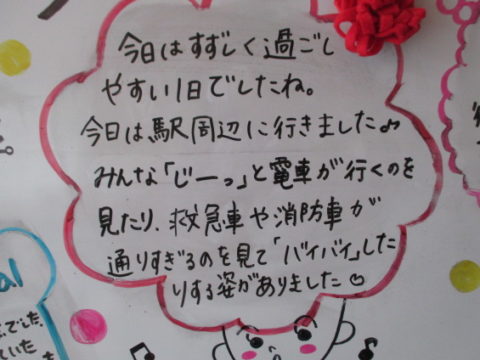 今日はすずしく過ごし
やすい1日でしたね。
今日は駅周辺に行きました♪
みんな「じーっ」と電車が行くのを
見たり、救急車や消防車が
通りすぎるのを見て「バイバイ」した
りする姿がありました♡
al